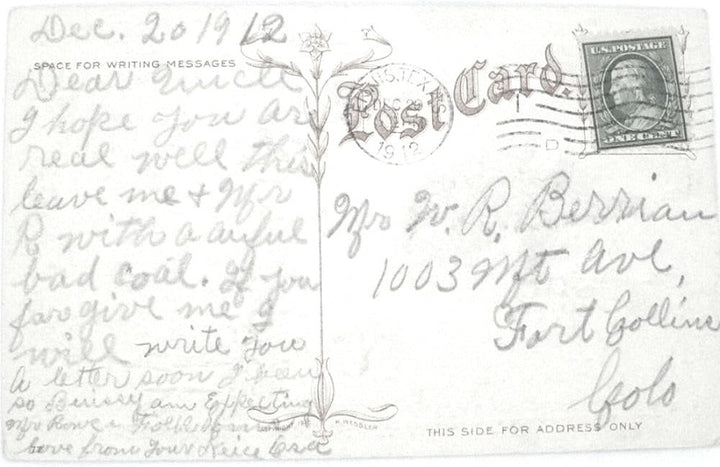 Dec. 20 1912
SPACE FOR WRITING MESSAGES
Dear Uncle
I hope you are
real well this
leave me & Mr
R with a awful
bad coal. If you
forgive me I
will write you
a letter soon I been
so Bussy am Expecting
Mr Rowe
love from Your Niece
Post Card.
TEX
1912
U.S. POSTAGE
ONE CENT
D
Mr W. R. Berrian
1003 Mt Ave,
Fort Collins
Colo
COPYRIGHT
H. WESSLER
THIS SIDE FOR ADDRESS ONLY